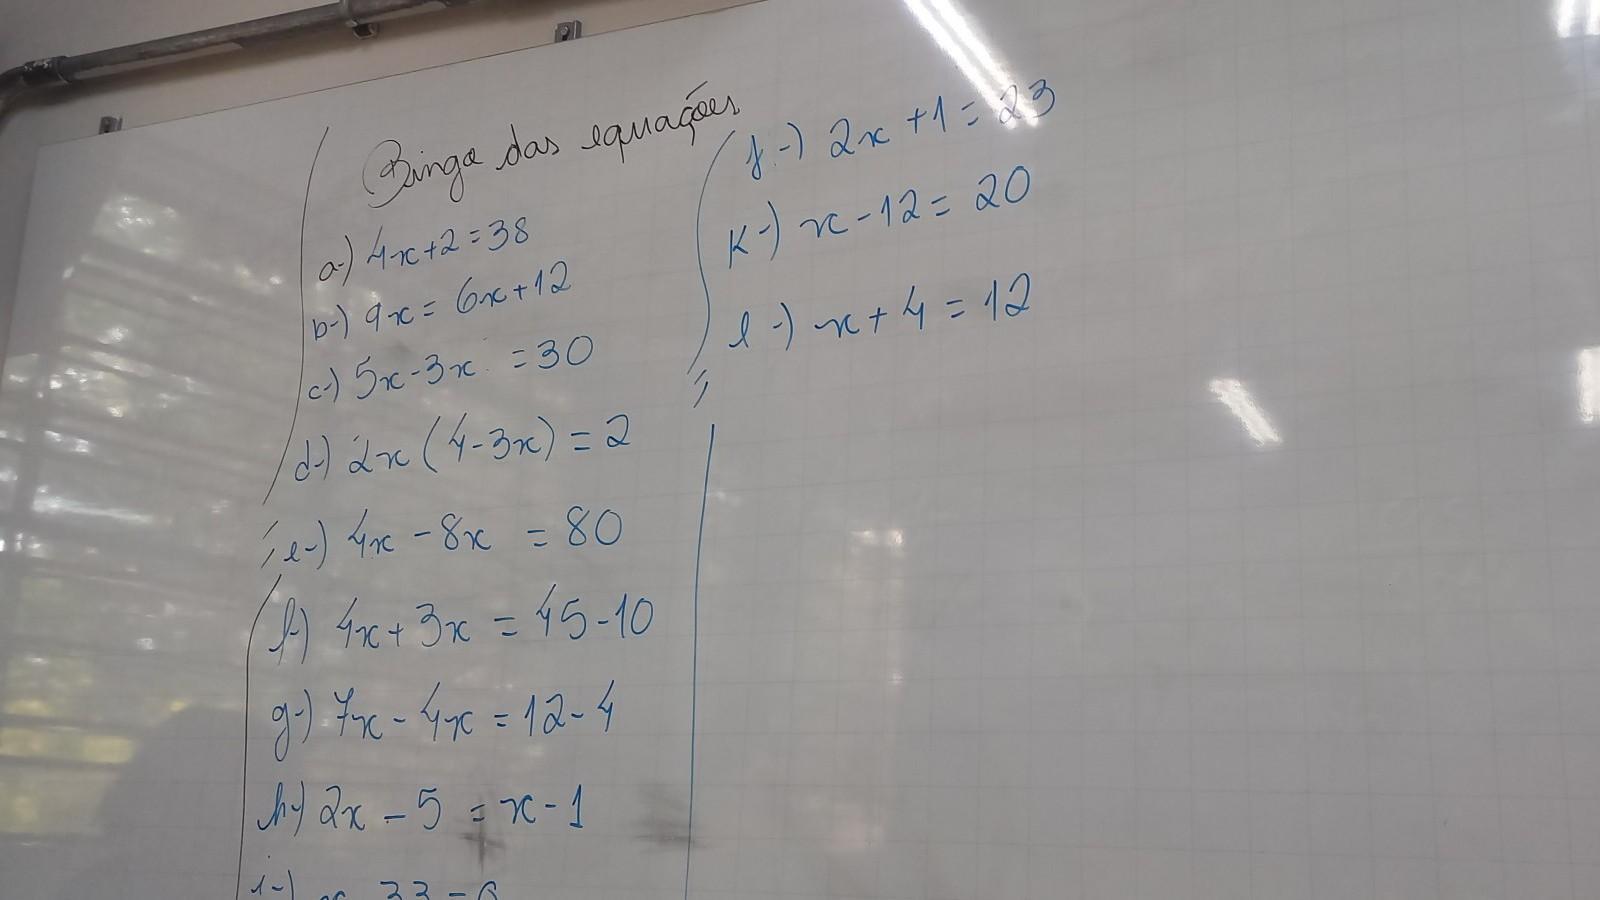 Bingo das equações
a-) 4x+2=38
b-) 9x= 6x+12
c-) 5x-3x =30
d-) 2x (4-3x) = 2
e-) 4x - 8x = 80
f-) 4x+3x = 45-10
g-) 7x - 4x = 12-4
h-) 2x - 5 = x-1
i-)
j-) 2x +1 = 23
K-) x -12 = 20
l-) x + 4 = 12